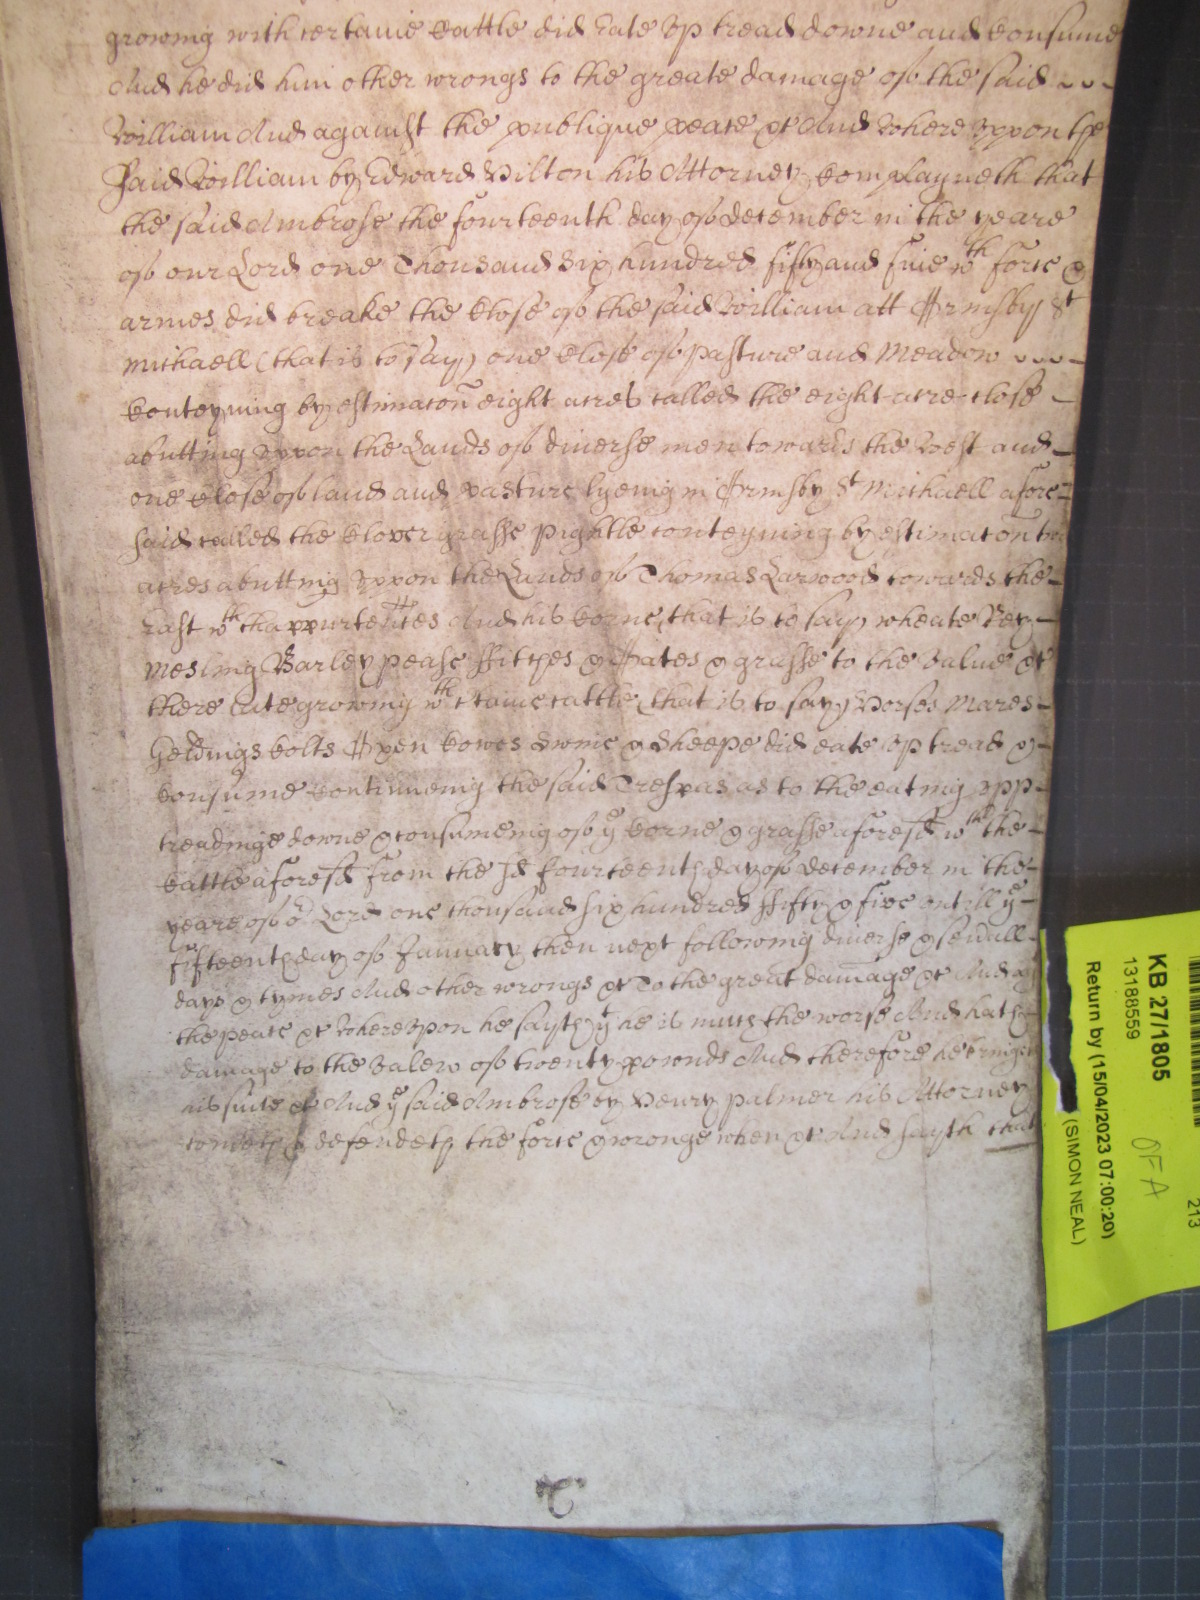 growing with certaine Cattle did Eate vp tread downe and Consume
And he did him other wrongs to the greate damage of the said
William And against the publique peace &c And Wherevppon the
said William by Edward Hilton his Attorney Complayneth that
the said Ambrose the fourteenth day of December in the yeare
of our Lord one Thousand Six hundred fifty and five wth force &
armes did breake the Close of the said William att Ormsby St
Michaell (that is to say) one Close of Pasture and Meadow
Conteyning by estimacon eight acres called the eight acre close
abutting vppon the Lands of diverse men towards the West and
one Close of land and pasture lyeing in Ormsby St Michaell afore
said called the Clover grasse Pightle conteyning by estimacon two
acres abutting vppon the Lands of Thomas Larwood towards the
East wth thappurtentes And his Corne, that is to say, wheate Rey
Mesling Barley pease ffitches & Oates & grasse to the Value &c
there late growing wth ctaine cattle, that is to say, Horses Mares
Geldings Colts Oxen Cowes Swine & Sheepe did eate vp tread &
Consume Continueing the said Trespas as to the eating vpp
treadinge downe & consumeing of ye Corne & grasse aforesd wth the
Cattle aforesd from the sd fourteenth day of December in the
yeare of or Lord one thousand six hundred ffifty & five vntill ye
fifteenth day of January then next following diverse & severall
days & tymes And other wrongs &c To the great damage &c And agt
the peace &c Wherevpon he sayth yt he is much the worse And hath
damage to the Valew of twenty pownds And therefore he bringeth
his suite &c And ye said Ambrose by Henry Palmer his Attorney
cometh & defendeth the force & wronge when &c And sayth that
KB 27/1805
13188559
Return by (15/04/2023 07:00:20)
(SIMON NEAL)
213